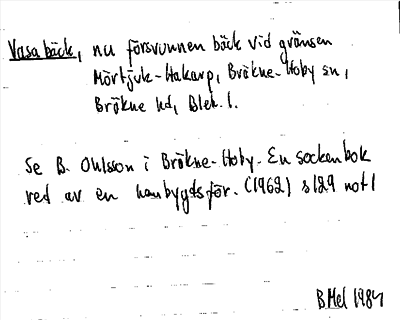 Vasabäck, nu försvunnen bäck vid gränsen
Mörtjuk-Hakarp, Bräkne-Hoby sn,
Bräkne hd, Blek. l.
Se B. Ohlsson i Bräkne-Hoby. En sockenbok
red av en hembygdsför. (1962) s 129 not 1
BMel 1984